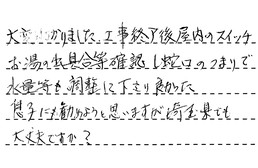 大変助かりました。工事終了後屋内のスイッチ
お湯の出具合等確認し蛇口のつまりで
水量等も調整して下さり良かった
息子にも勧めようと思いますが埼玉県でも
大丈夫ですか?